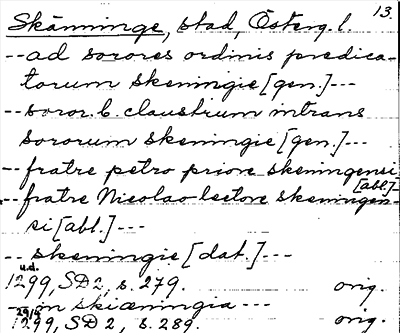 13.
Skänninge, stad, Österg. l.
-- ad sorores ordinis predica-
torum skeningie [gen.] ---
-- soror. b. claustrum intrans
sororum skeningie [gen.] ---
-- fratre petro priore skeningensi
[abl.] ---
-- fratre Nicolao lectore skeningen-
si [abl.] ---
-- skeningie [dat.] ---
u.d.
1299, SD 2, s. 279. orig.
-- in skiæningia ---
29/9
1299, SD 2, s. 289. orig.